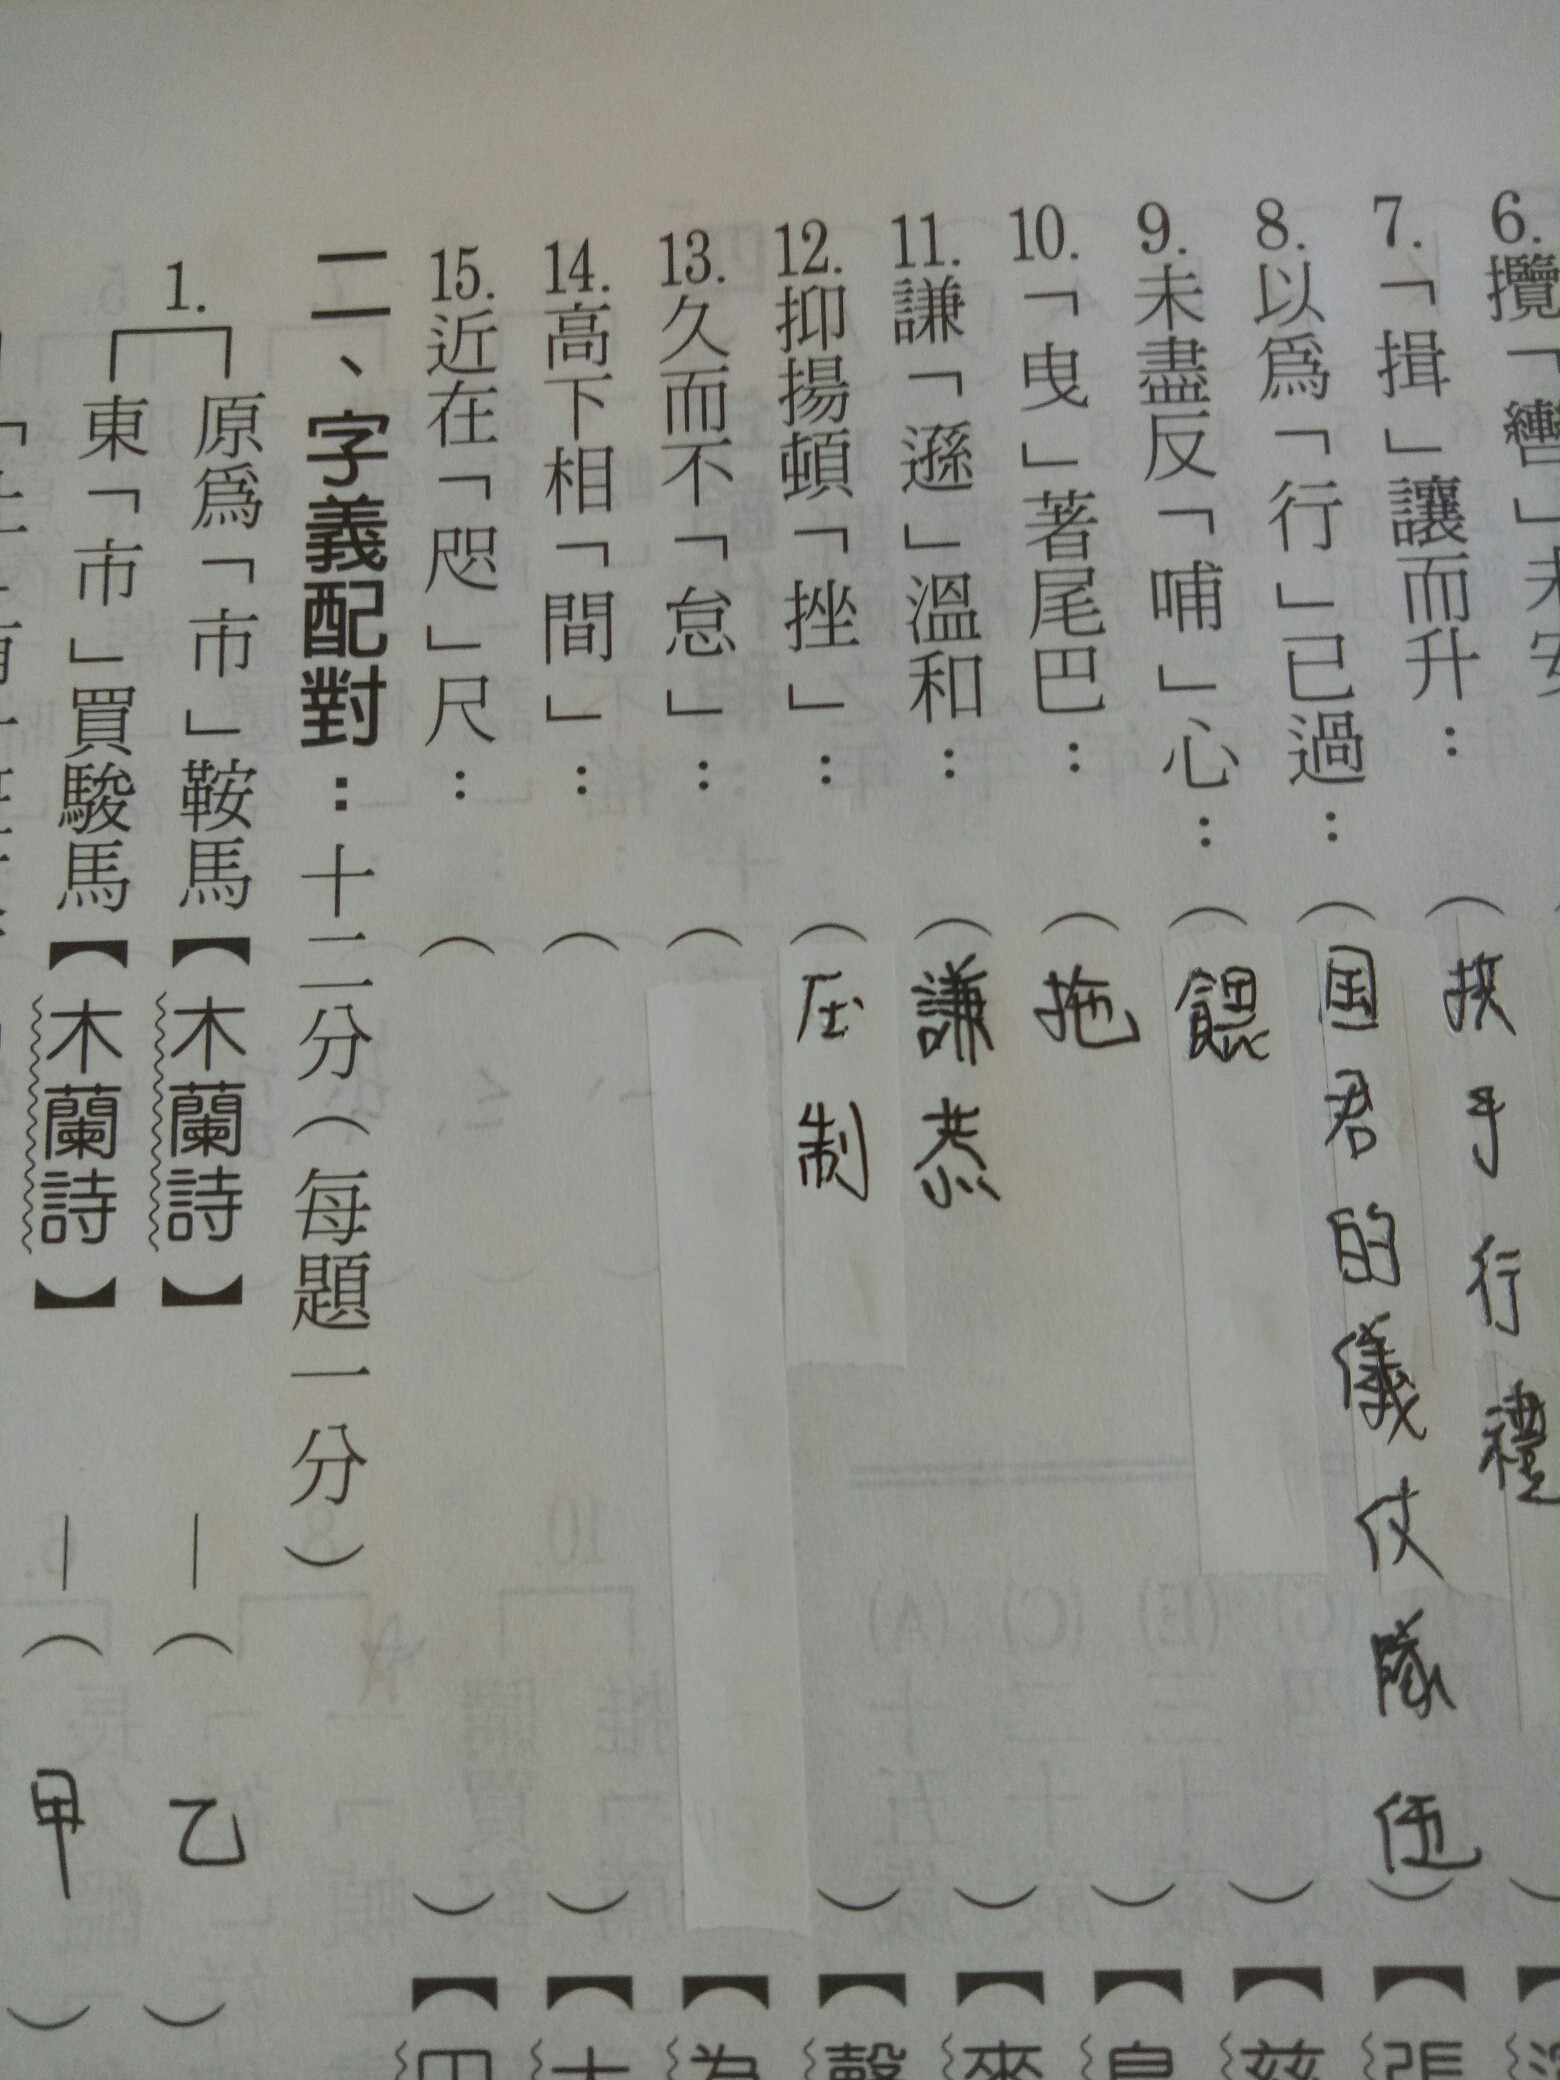 6.攬「轡」未安
7.「揖」讓而升：（扠手行禮
8.以爲「行」已過：（国君的儀仗隊伍）
9.未盡反「哺」心：（餵）
10.「曳」著尾巴：（拖）
11.謙「遜」溫和：（謙恭）
12.抑揚頓「挫」：（压制）
13.久而不「怠」：（
14.高下相「間」：（）
15.近在「咫」尺：（）
二、字義配對：十二分（每題一分）
1.原爲「市」鞍馬【木蘭詩】—（乙）
東「市」買駿馬【木蘭詩】—（甲）